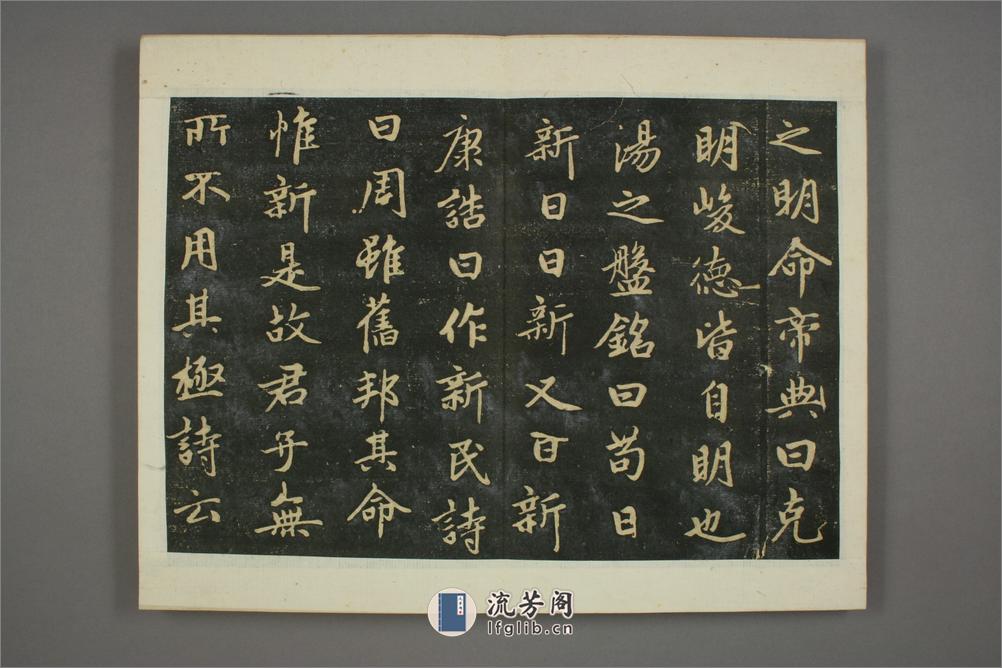 之明命帝典曰克
明峻德皆自明也
湯之盤銘曰苟日
新日日新又日新
康誥曰作新民詩
曰周雖舊邦其命
惟新是故君子無
所不用其極詩云
流芳阁
lfglib.cn